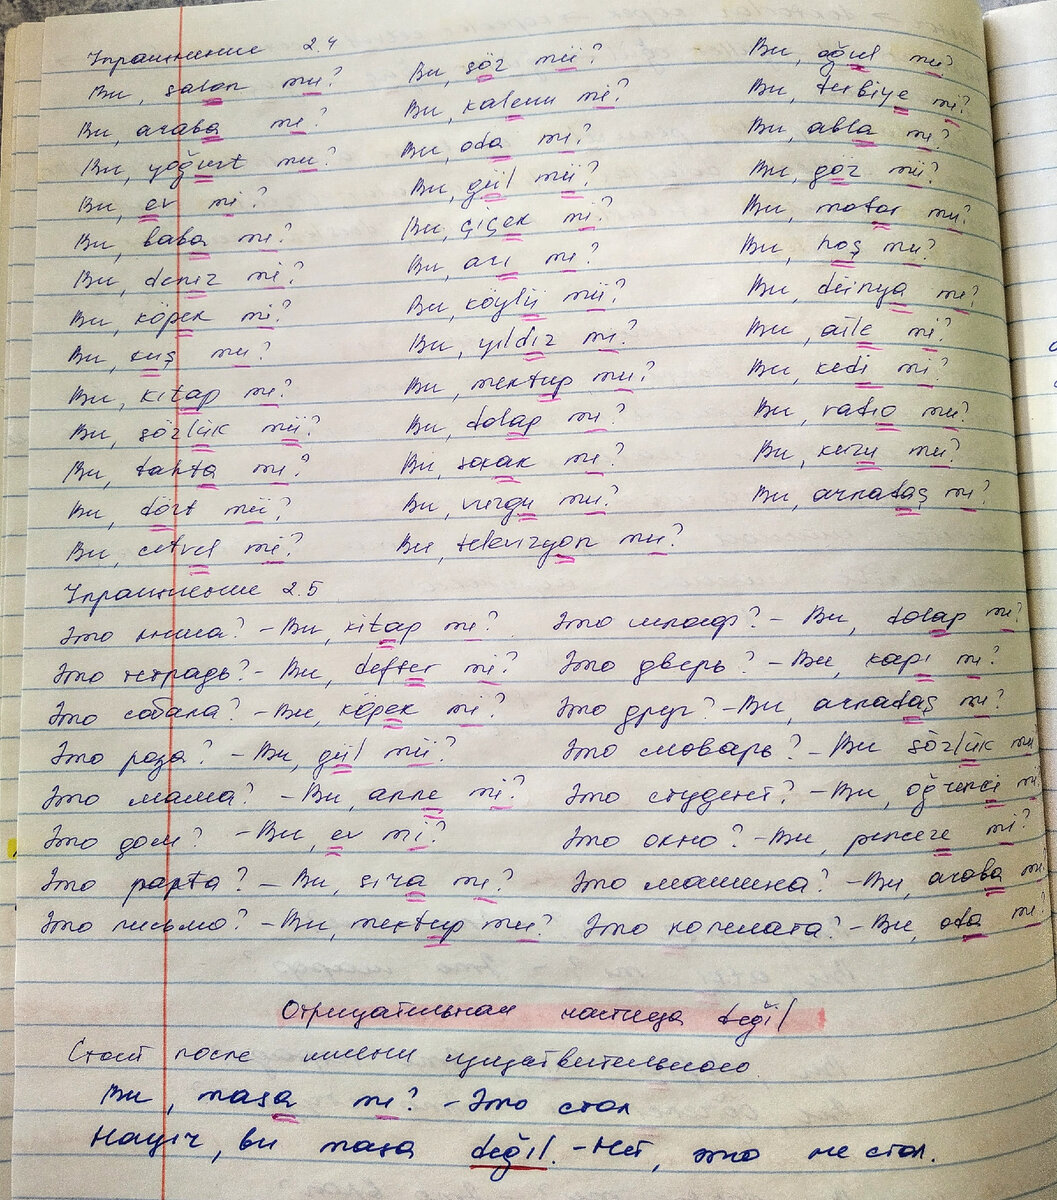 Упражнение 2.4
Bu, salon mu? Bu, söz mü? Bu, oğul mu?
Bu, araba mı? Bu, kalem mi? Bu, terbiye mi?
Bu, yoğurt mu? Bu, oda mı? Bu, abla mı?
Bu, ev mi? Bu, gül mü? Bu, göz mü?
Bu, baba mı? Bu, çiçek mi? Bu, motor mu?
Bu, deniz mi? Bu, arı mı? Bu, hoş mu?
Bu, köpek mi? Bu, köylü mü? Bu, dünya mı?
Bu, kuş mu? Bu, yıldız mı? Bu, aile mi?
Bu, kitap mı? Bu, mektup mu? Bu, kedi mi?
Bu, sözlük mü? Bu, dolap mı? Bu, radio mu?
Bu, tahta mı? Bu, sokak mı? Bu, kuzu mu?
Bu, dört mü? Bu, vurgu mu? Bu, arkadaş mı?
Bu, cetvel mi? Bu, televizyon mu?
Упражнение 2.5
Это книга? – Bu, kitap mı? Это шкаф? – Bu, dolap mı?
Это тетрадь? – Bu, defter mi? Это дверь? – Bu, kapı mı?
Это собака? – Bu, köpek mi? Это друг? – Bu, arkadaş mı?
Это роза? – Bu, gül mü? Это словарь? – Bu sözlük mü
Это мама? – Bu, anne mi? Это студент? – Bu, öğrenci mi
Это дом? – Bu, ev mi? Это окно? – Bu, pencere mi?
Это парта? – Bu, sıra mı? Это машина? – Bu, araba mı
Это письмо? – Bu, mektup mu? Это комната? – Bu, oda mı?
Отрицательная частица değil
Стоит после имени существительного
Bu, masa mı? – Это стол
Hayır, bu masa değil. – Нет, это не стол.